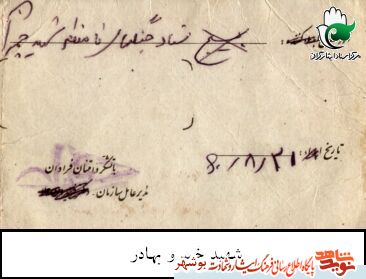 مرکز اسناد ایثارگران
ستاد جنگهای نامنظم شهید چمران
تاریخ اعزام: ۶۰/۸/۲۱
باتشکر و امتنان فراوان
مدیر عامل سازمان
شهید خی و بهادر
نوید شاهد
پایگاه اطلاع رسانی فرهنگ ایثار و شهادت بوشهر